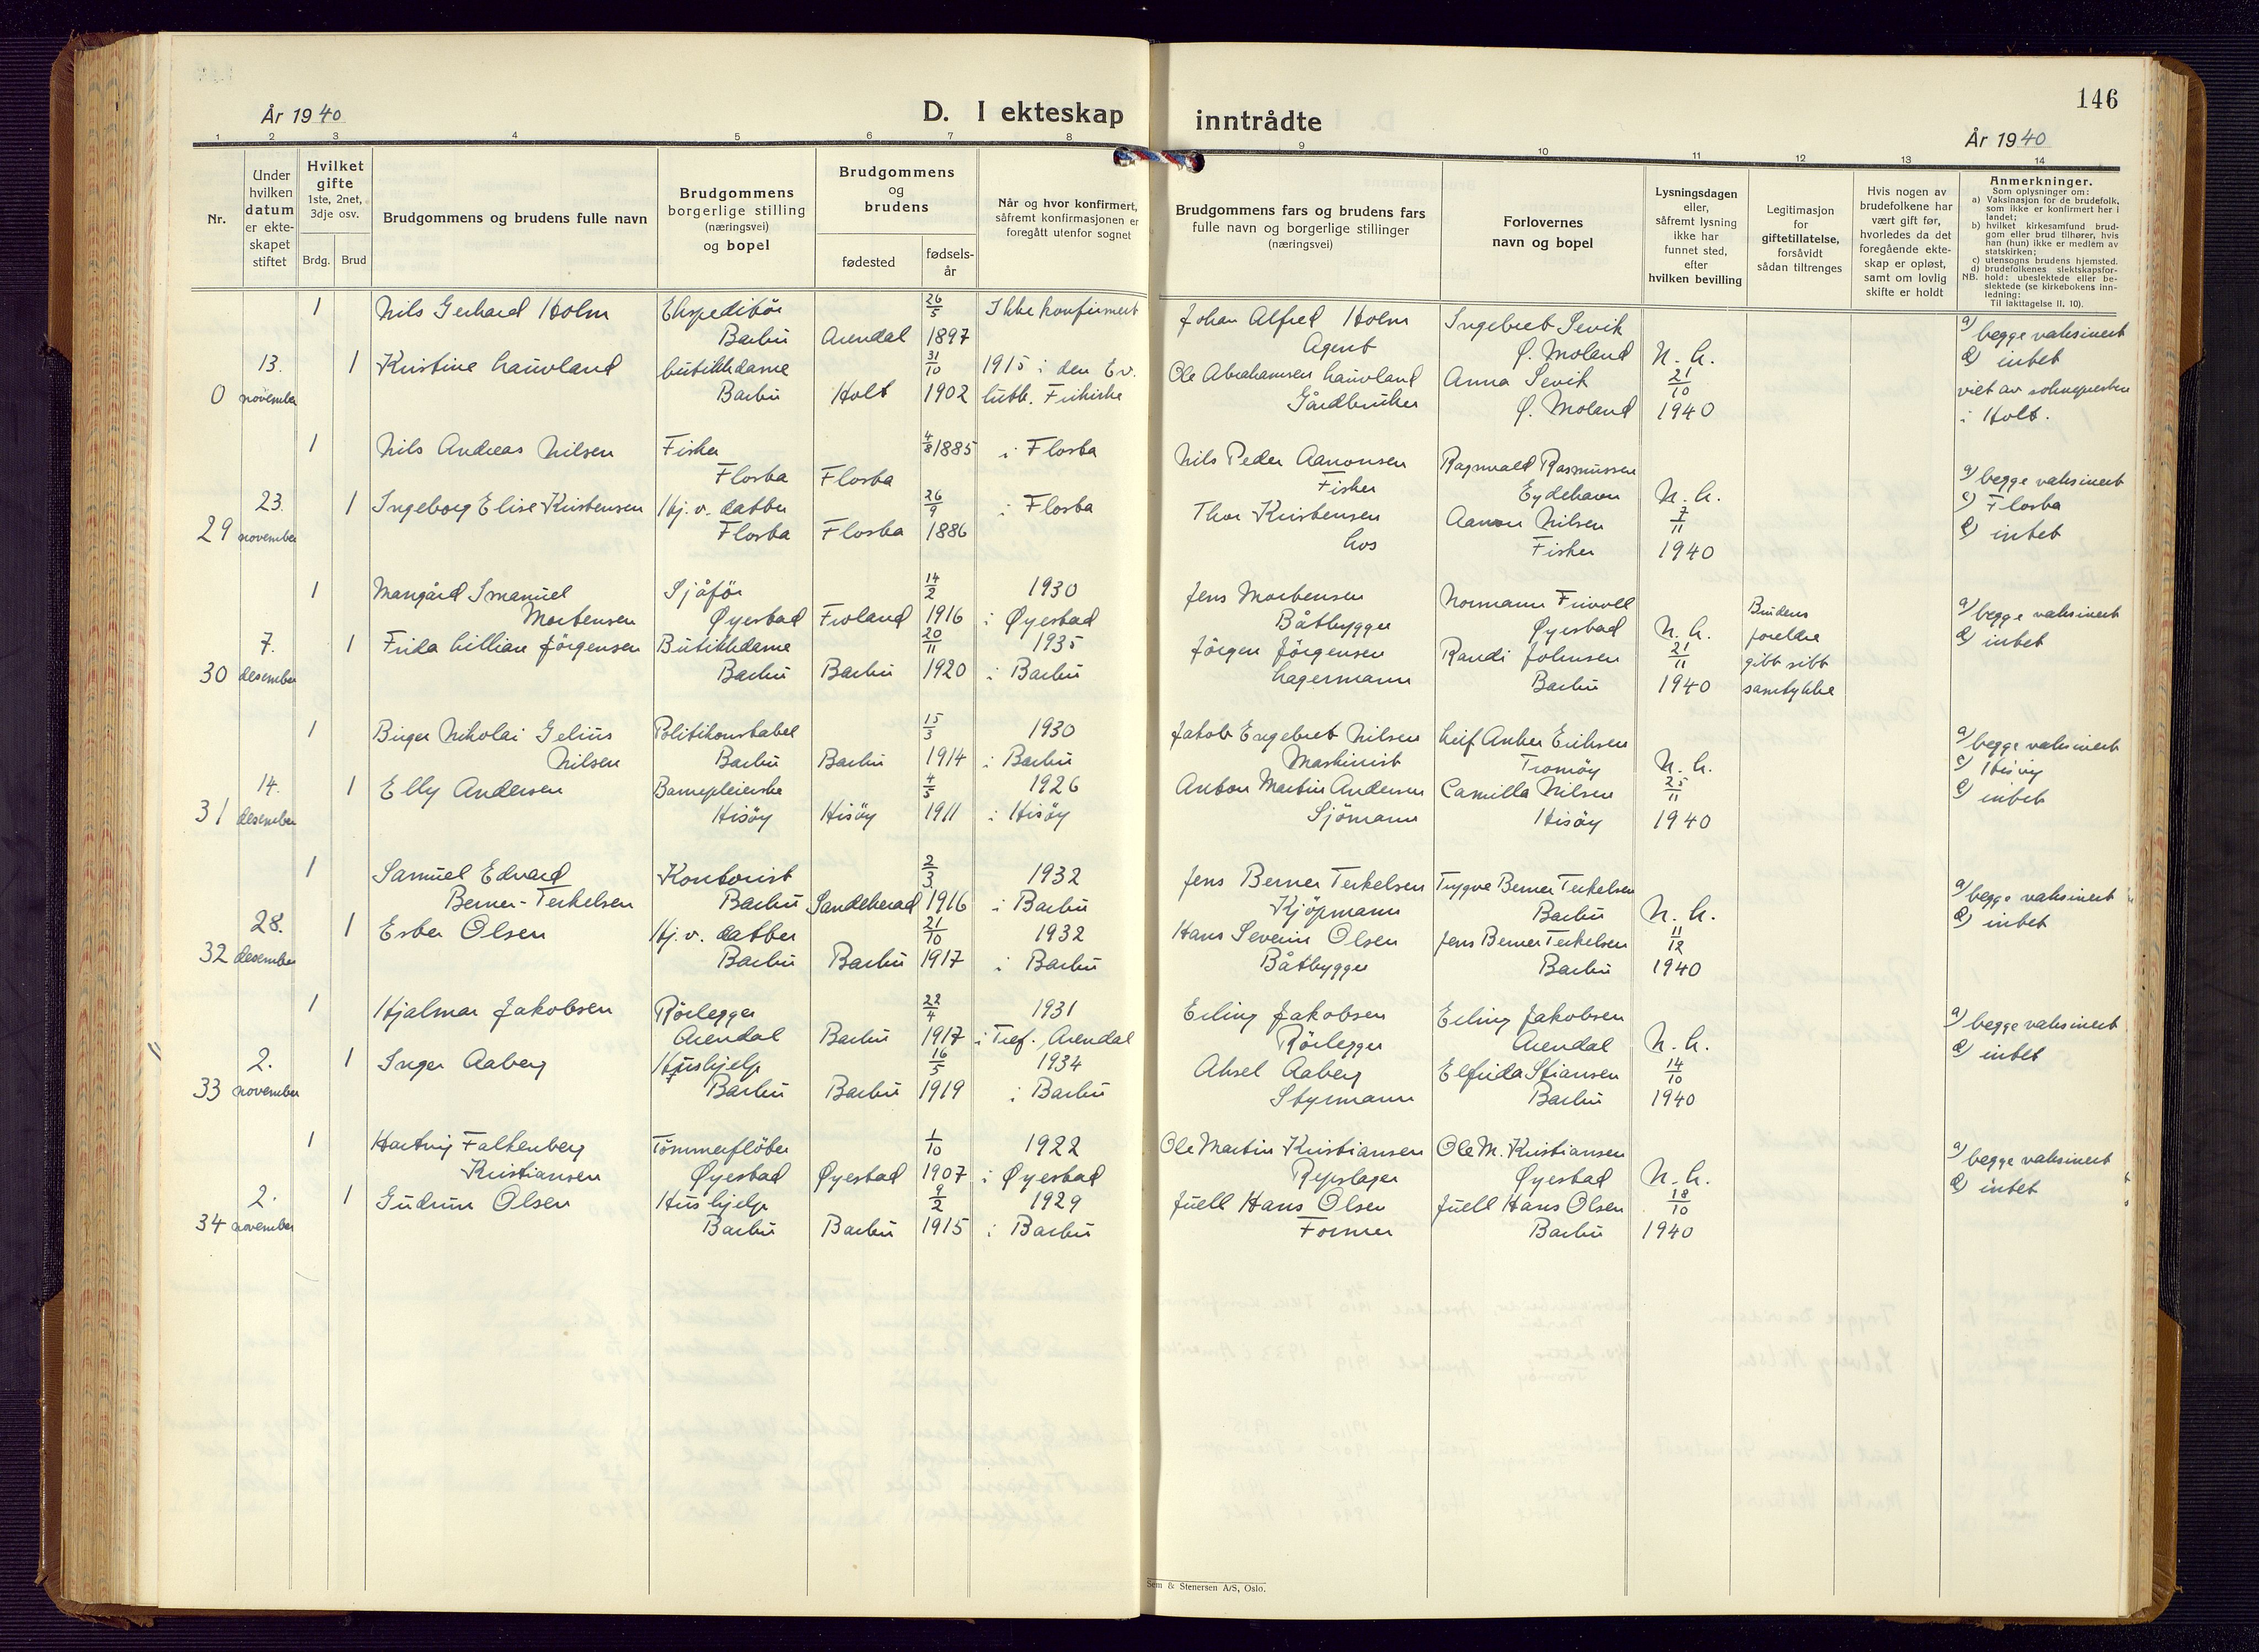 146
År 1940
D. I ekteskap inntrådte
År 1940
1 2 3 4 5 6 7 8 9 10 11 12 13 14
Nr.
Under
hvilken
datum
er ekte-
skapet
stiftet
Hvilket
gifte
1ste, 2net,
3dje osv.
Brdg. Brud
Brudgommens og brudens fulle navn
Brudgommens
borgerlige stilling
(næringsvei)
og bopel
Brudgommens
og
brudens
fødested
fødsels-
år
Når og hvor konfirmert,
såfremt konfirmasjonen er
foregått utenfor sognet
Brudgommens fars og brudens fars
fulle navn og borgerlige stillinger
(næringsvei)
Forlovernes
navn og bopel
Lysningsdagen
eller,
såfremt lysning
ikke har
funnet sted,
efter
hvilken bevilling
Legitimasjon
for
giftetillatelse,
forsåvidt
sådan tiltrenges
Hvis nogen av
brudefolkene har
vært gift før,
hvorledes da det
foregående ekte-
skap er opløst,
samt om lovlig
skifte er holdt
Anmerkninger.
Som oplysninger om:
a) Vaksinasjon for de brudefolk,
som ikke er konfirmert her i
landet;
b) hvilket kirkesamfund brud-
gom eller brud tilhører, hvis
han (hun) ikke er medlem av
statskirken;
c) utensogns brudens hjemsted.
d) brudefolkenes slektskapsfor-
NB. hold: ubeslektede eller be-
slektede (se kirkebokens inn-
ledning:
Til iakttagelse II, 10).
1 Nils Gerhard Holm Ekspeditør 26/5 Ikke konfirmert Johan Alfred Holm Ingebret Sevik a) begge vaksinert
Barbu Arendal 1897 Agent Ø. Moland N. L. d) intet
13. 1 Kristine Lauvland butikkdame 31/10 1915 i den Ev. Ole Abrahamsen Lauvland Anna Sevik 21/10 viet av soknepresten
0 november Barbu Holt 1902 luth. Frikirke Gårdbruker Ø. Moland 1940 i Holt.
1 Nils Andreas Nilsen Fisker 4/8 1885 i Flosta Nils Peder Aanonsen Ragnvald Rasmussen a) begge vaksinert
Flosta Flosta Fisker Eydehavn N. L. c) Flosta
23. 1 Ingeborg Elise Kristensen Hj. v. datter 26/9 i Flosta Thor Kristensen Aanon Nilsen 7/11 d) intet
29 november Flosta Flosta 1886 Los Fisker 1940
1 Mangård Imanuel Sjåfør 14/2 1930 Jens Mortensen Normann Frivoll Brudens a) begge vaksinert
Mortensen Øyestad Froland 1916 i Øyestad Båtbygger Øyestad N. L. foreldre d) intet
7. 1 Frida Lillian Jörgensen Butikkdame 20/11 1935 Jörgen Jörgensen Randi Johnsen 21/11 gitt sitt
30 desember Barbu Barbu 1920 i Barbu Lagermann Barbu 1940 samtykke
1 Birger Nikolai Gelius Politikonstabel 15/3 1930 Jakob Engebret Nilsen Leif Anker Eriksen a) begge vaksinert
Nilsen Barbu Barbu 1914 i Barbu Maskinist Tromöy N. L. c) Hisöy
14. 1 Elly Andersen Barnepleierske 4/5 1926 Anton Martin Andersen Camilla Nilsen 25/11 d) intet
31 desember Hisöy Hisöy 1911 i Hisöy Sjömann Hisöy 1940
1 Samuel Edvard Kontorist 2/3 1932 Jens Berner Terkelsen Trygve Berner Terkelsen a) begge vaksinert
Berner-Terkelsen Barbu Sandeherad 1916 i Barbu Kjöpmann Barbu N. L. d) intet
28. 1 Ester Olsen Hj. v. datter 21/10 1932 Hans Severin Olsen Jens Berner Terkelsen 11/12
32 desember Barbu Barbu 1917 i Barbu Båtbygger Barbu 1940
1 Hjalmar Jakobsen Rörlegger 22/4 1931 Erling Jakobsen Erling Jakobsen a) begge vaksinert
Arendal Barbu 1917 i Tref., Arendal Rörlegger Arendal N. L. d) intet
2. 1 Inger Aaberg Hushjelp 16/5 1934 Aksel Aaberg Elfrida Stiansen 14/10
33 november Barbu Barbu 1919 i Barbu Styrmann Barbu 1940
1 Hartvig Falkenberg Tömmerflöter 1/10 1922 Ole Martin Kristiansen Ole M. Kristiansen a) begge vaksinert
Kristiansen Øyestad Øyestad 1907 i Øyestad Repslager Øyestad N. L. d) intet
2. 1 Gudrun Olsen Hushjelp 9/2 1929 Juell Hans Olsen Juell Hans Olsen 18/10
34 november Barbu Barbu 1915 i Barbu Former Barbu 1940
Sem & Stenersen A/S, Oslo.